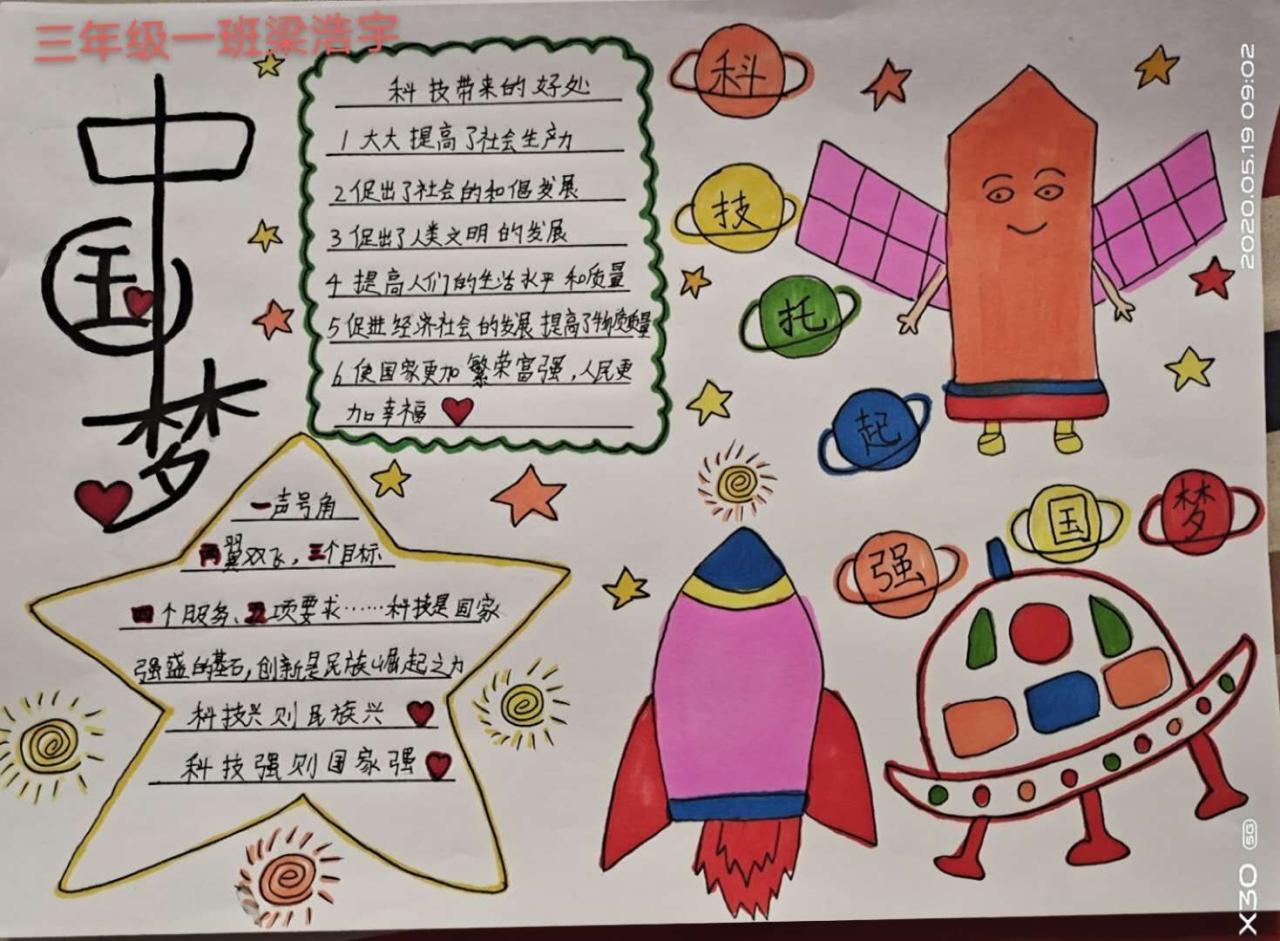 三年级一班梁浩宇
中国梦
科技带来的好处
1 大大提高了社会生产力
2 促出了社会的和偈发展
3 促出了人类文明的发展
4 提高人们的生活水平和质量
5 促进经济社会的发展提高了物质质量
6 使国家更加繁荣富强,人民更
加幸福
一声号角
两翼双飞,三个目标
四个服务、五项要求……科技是国家
强盛的基石,创新是民族崛起之力
科技兴则民族兴
科技强则国家强
科
技
托
起
强
国
梦
2020.05.19 09:02
X30 5G